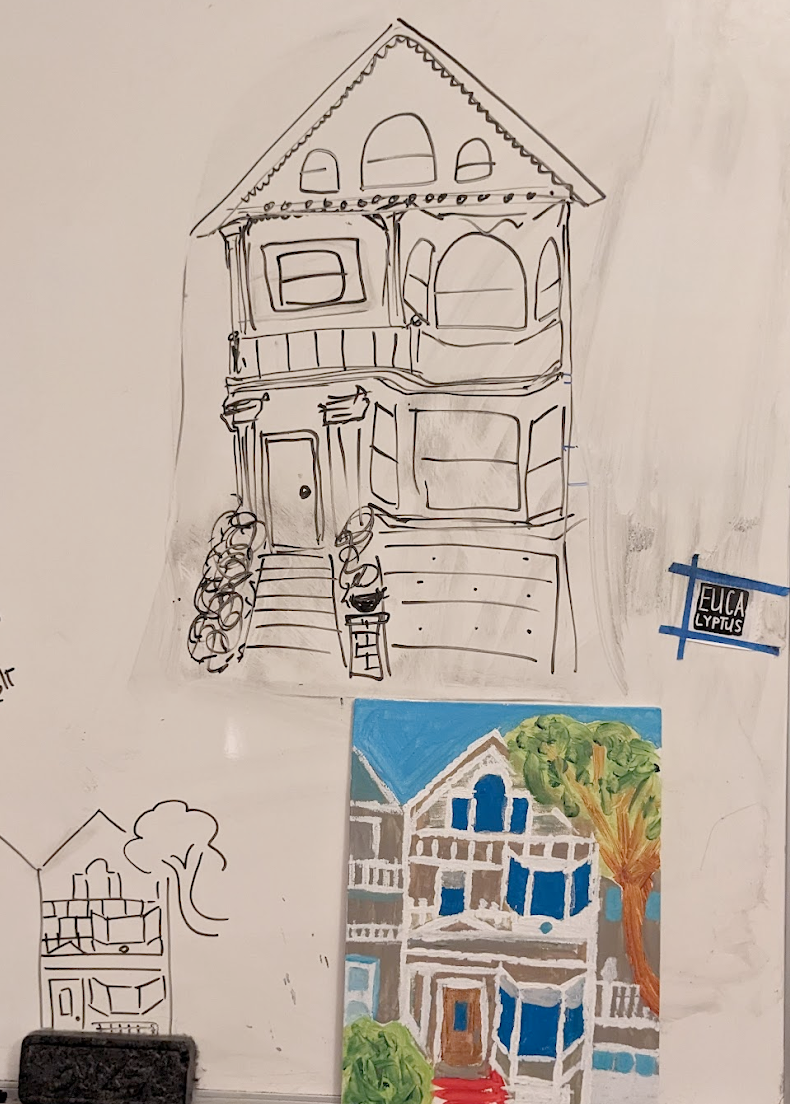 EUCA
LYPTUS